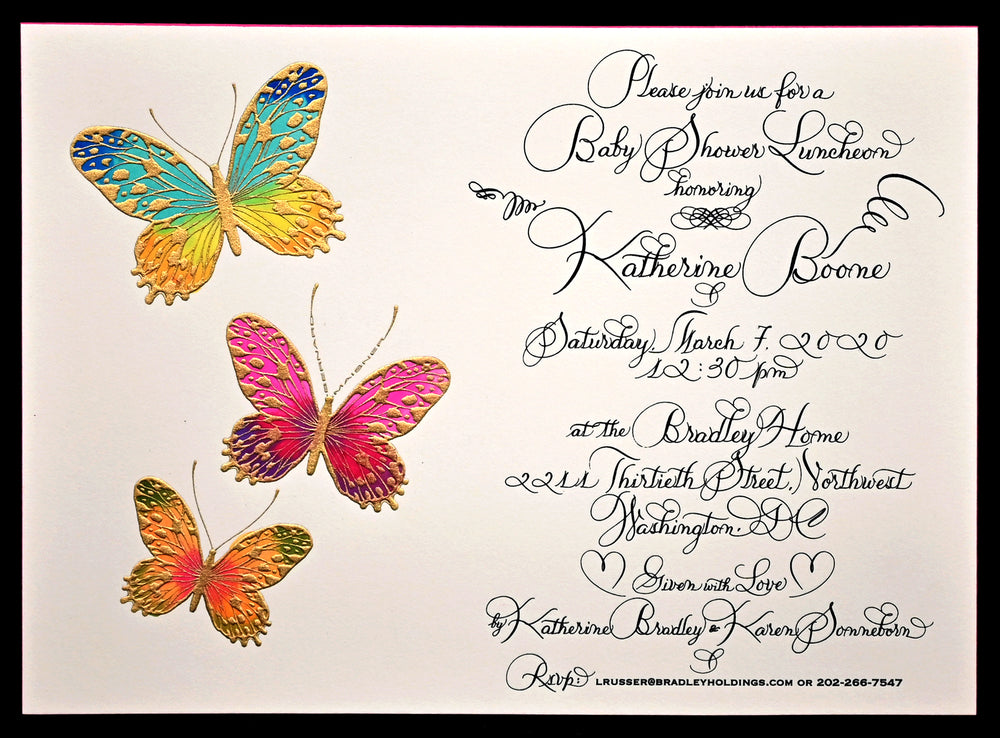 Please join us for a
Baby Shower Luncheon
honoring
Katherine Boone
Saturday, March 7, 2020
12:30 pm
at the Bradley Home
2211 Thirtieth Street, Northwest
Washington, DC
Given with Love
by Katherine Bradley & Karen Sonneborn
Rsvp: LRUSSER@BRADLEYHOLDINGS.COM OR 202-266-7547